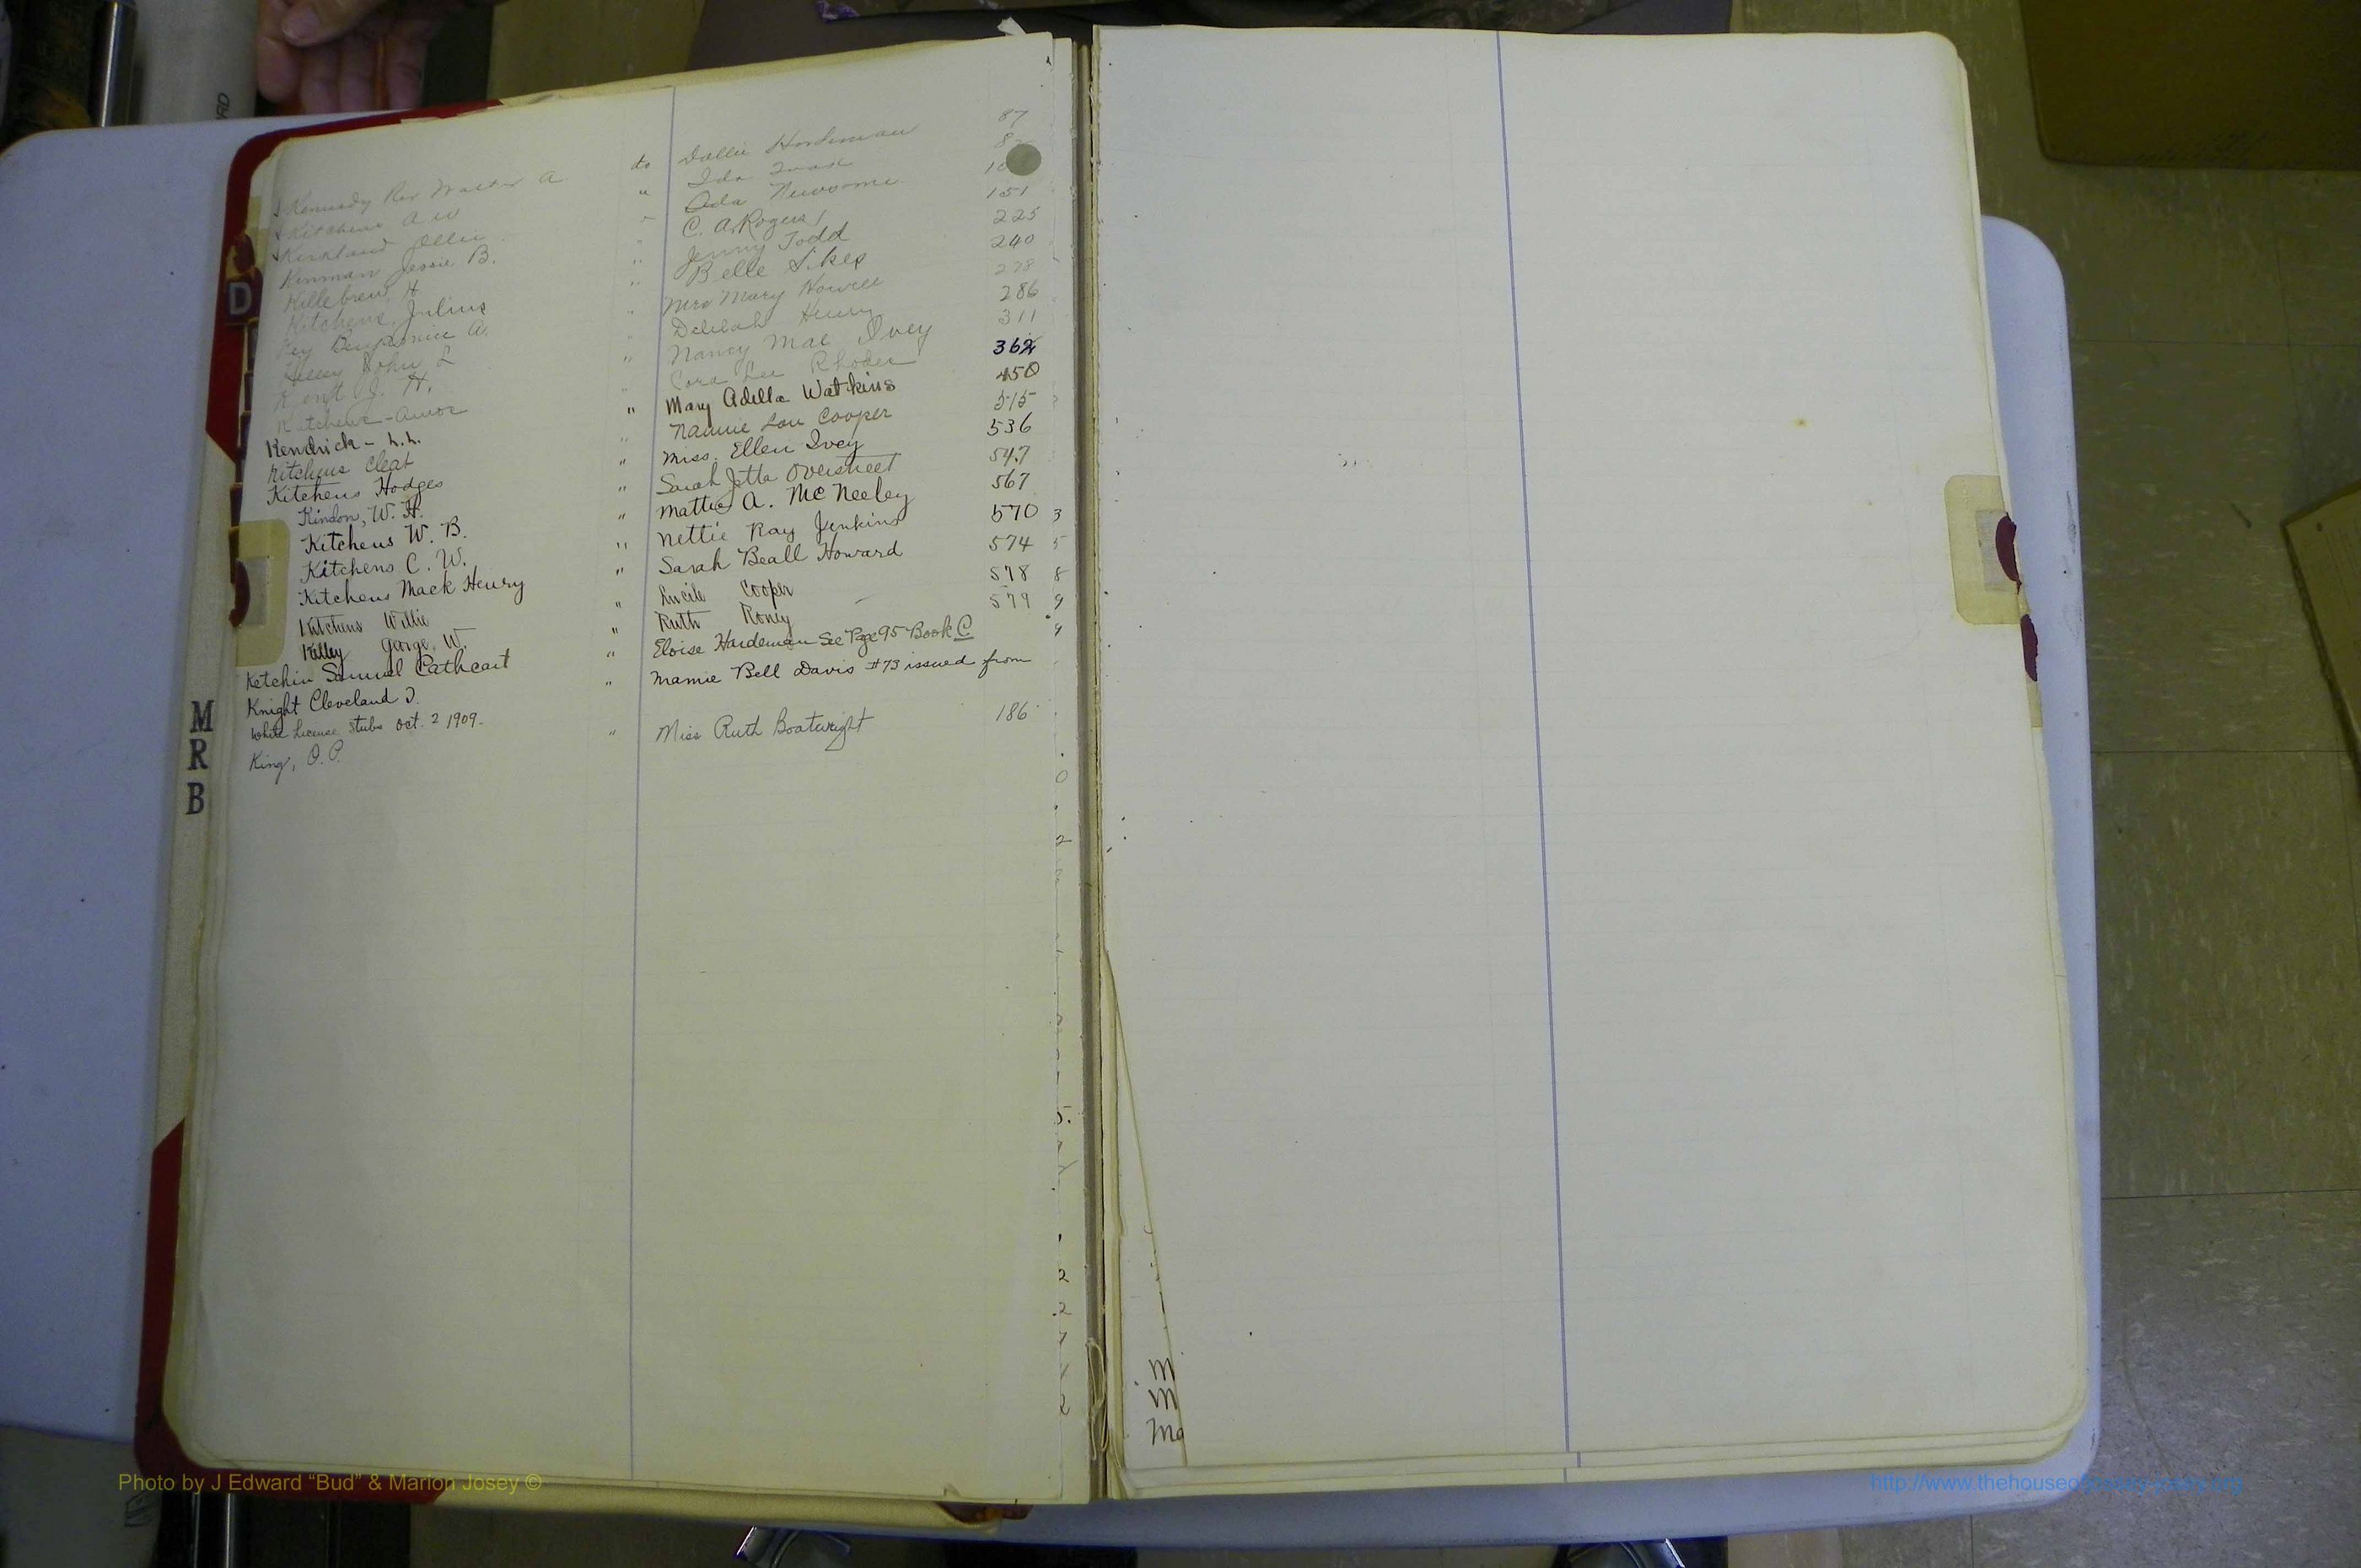 Kennedy Rev Walter A to Dollie Hardeman 87
Kitchens A W " Ida
Kirkland Ollie " Ada Newsome 151
Kinman Jessie B. " C. A. Rogers 225
Killebrew, H " Jenny Todd 240
Kitchens, Julius " Belle Sikes 278
Key A. " Mrs Mary Howell 286
Kelley John L " Delilah Henry 311
Kent J. H. " Nancy Mae Ivey 362
Kitchens - " Cora Lee Rhodes 450
Kendrick - L.L. " Mary Adella Watkins 515
Kitchens Cleat " Nannie Lou Cooper 536
Kitchens Hodges " Miss. Ellen Ivey 547
Kindon, W. H. " Sarah Jetta Overstreet 567
Kitchens W. B. " Mattie A. McNeeley 570
Kitchens C. W. " Nettie Ray Jenkins 574
Kitchens Mack Henry " Sarah Beall Howard 578
Kitchens Willie " Lucile Cooper 579
Kelley George, W. " Ruth Roney
Ketchin Samuel Cathcart " Eloise Hardeman See Page 95 Book C
Knight Cleveland J. " Mamie Bell Davis #73 issued from
White License Stubs Oct. 2 1909.
King, O. P. " Miss Ruth Boatwright 186
D
M
R
B
3
5
8
9
9
0
2
5.
2
2
7
2
M
M
Ma
Photo by J Edward “Bud” & Marion Josey ©